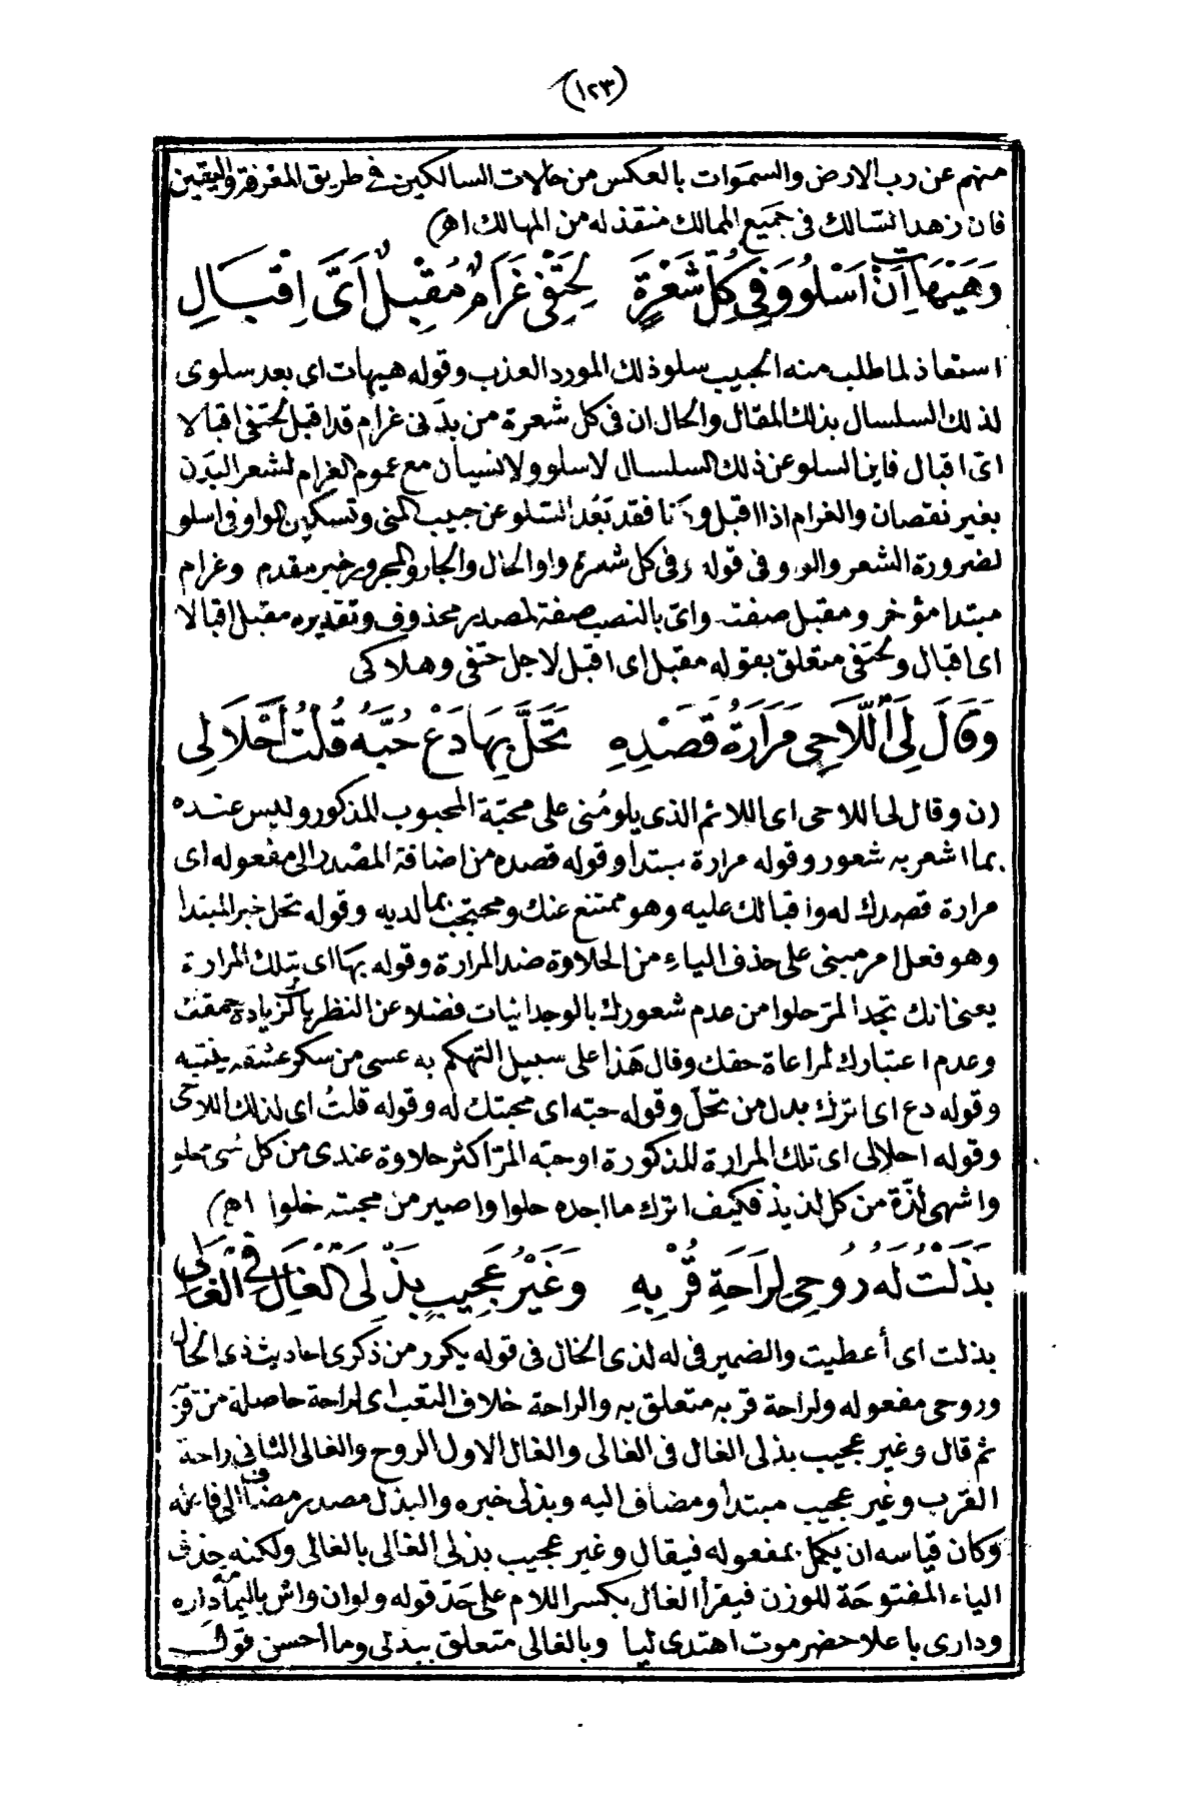 (١٢٣)
منهم عن رب الارض والسموات بالعكس من حالات السالكين في طريق المعرفة واليقين
فان زهد السالك فى جميع الممالك منقذ له من المهالك اه)
وَهَيْهَاتَ اَنْ اَسْلُو وَفِى كُلِّ شَعْرَةٍ لِحَتْفِى غَرَامٌ مُقْبِلٌ اَىَّ اِقْبَالِ
استعاذ لما طلب منه الحبيب سلو ذلك المورد العذب وقوله هيهات اى بعد سلوى
لذلك السلسال بذلك المقال والحال ان فى كل شعرة من بدنى غرام قد اقبل لحتفى اقبالا
اىّ اقبال فاين السلو عن ذلك السلسال لا سلو ولا نسيان مع عموم الغرام لشعر البدن
بغير نقصان والغرام اذا اقبل و نا فقد بَعُد السّلو عن حبيب المنى وتسكين الواو فى اسلو
لضرورة الشعر والواو فى قوله وفى كل شعرة واو الحال والجار والمجرور خبر مقدم وغرام
مبتدا مؤخر ومقبل صفت واىّ بالنصب صفة لمصدر محذوف وتقديره مقبل اقبالا
اى اقبال ولحتفى متعلق بقوله مقبل اى اقبل لاجل حتفى وهلاكى
وَقَالَ لِىَ اللَّاحِى مَرَارَةُ قَصْدِهِ تَحَلَّ بِهَا دَعْ حُبَّهُ قُلْتُ اَحْلَا لِى
(ن وقال لى اللاحى اى اللائم الذى يلومُنى على محبّة المحبوب المذكور وليس عنده
بما اشعر به شعور وقوله مرارة مبتدا وقوله قصده من اضافة المصدر الى مفعوله اى
مرارة قصدك له واقبالك عليه وهو ممتنع عنك ومحتجب بما لديه وقوله تحل خبر المبتدا
وهو فعل امر مبنى على حذف الياء من الحلاوة ضد المرارة وقوله بها اى بتلك المرارة
يعنى انك تجد المرّ حلوا من عدم شعورك بالوجدانيات فضلا عن النظريات لزيادة حمقت
وعدم اعتبارك لمراعاة حقك وقال هذا على سبيل التهكم به عسى من سكر عشقه ينتبه
وقوله دع اى اترك بدل من تحلّ وقوله حبّه اى محبتك له وقوله قلتُ اى لذلك اللاحى
وقوله احلالى اى تلك المرارة المذكورة او حبّه المرّ اكثر حلاوة عندى من كل شىء حلو
واشهى لذّة من كل لذيذ فكيف اترك ما اجده حلوا واصير من محبته خلوا اه)
بَذَلْتُ لَهُ رُوحِى لِرَاحَةِ قُرْبِهِ وَغَيْرُ عَجِيبٍ بَذْلِىَ الغَالِ فِى الغَالِى
بذلت اى أعطيت والضمير فى له لذى الخال فى قوله يكرر من ذكرى احاديث ذى الخال
وروحى مفعوله ولراحة قربه متعلق به والراحة خلاف التعب اى لراحة حاصلة من قربه
ثم قال وغير عجيب بذلى الغال فى الغالى والغال الاول الروح والغالى الثانى راحة
القرب وغير عجيب مبتدأ ومضاف اليه وبذلى خبره والبذل مصدر مضاف الى فاعله
وكان قياسه ان يكمل بمفعوله فيقال وغير عجيب بذلى الغالى بالغالى ولكنه حذف
الياء المفتوحة للوزن فيقرأ الغال بكسر اللام على حدّ قوله ولو ان واش باليمامة داره
ودارى با علا حضرموت اهتدى ليا وبالغالى متعلق ببذلى وما أحسن قوله